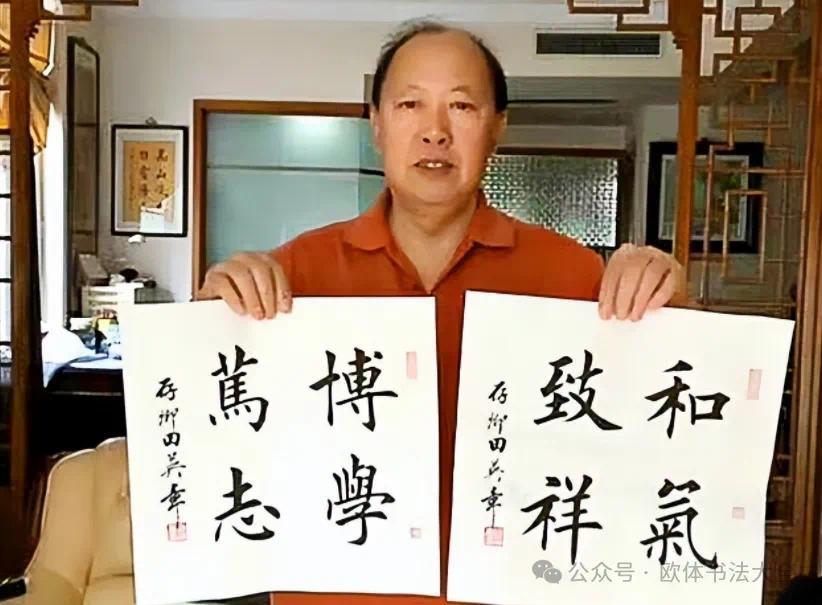 博學
篤志
存卿田英章
和氣
致祥
存卿田英章
公众号 · 欧体书法大